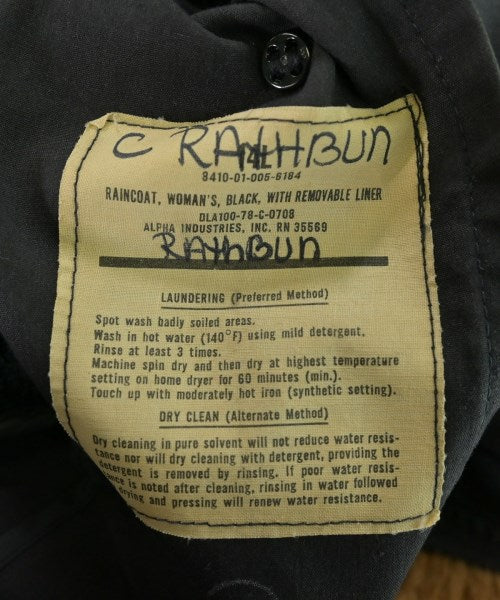 C RATHBUN
14L
8410-01-005-6184
RAINCOAT, WOMAN'S, BLACK, WITH REMOVABLE LINER
DLA100-78-C-0708
ALPHA INDUSTRIES, INC. RN 35569
RAthBUN
LAUNDERING (Preferred Method)
Spot wash badly soiled areas.
Wash in hot water (140°F) using mild detergent.
Rinse at least 3 times.
Machine spin dry and then dry at highest temperature
setting on home dryer for 60 minutes (min.).
Touch up with moderately hot iron (synthetic setting).
DRY CLEAN (Alternate Method)
Dry cleaning in pure solvent will not reduce water resis-
tance nor will dry cleaning with detergent, providing the
detergent is removed by rinsing. If poor water resis-
tance is noted after cleaning, rinsing in water followed
drying and pressing will renew water resistance.